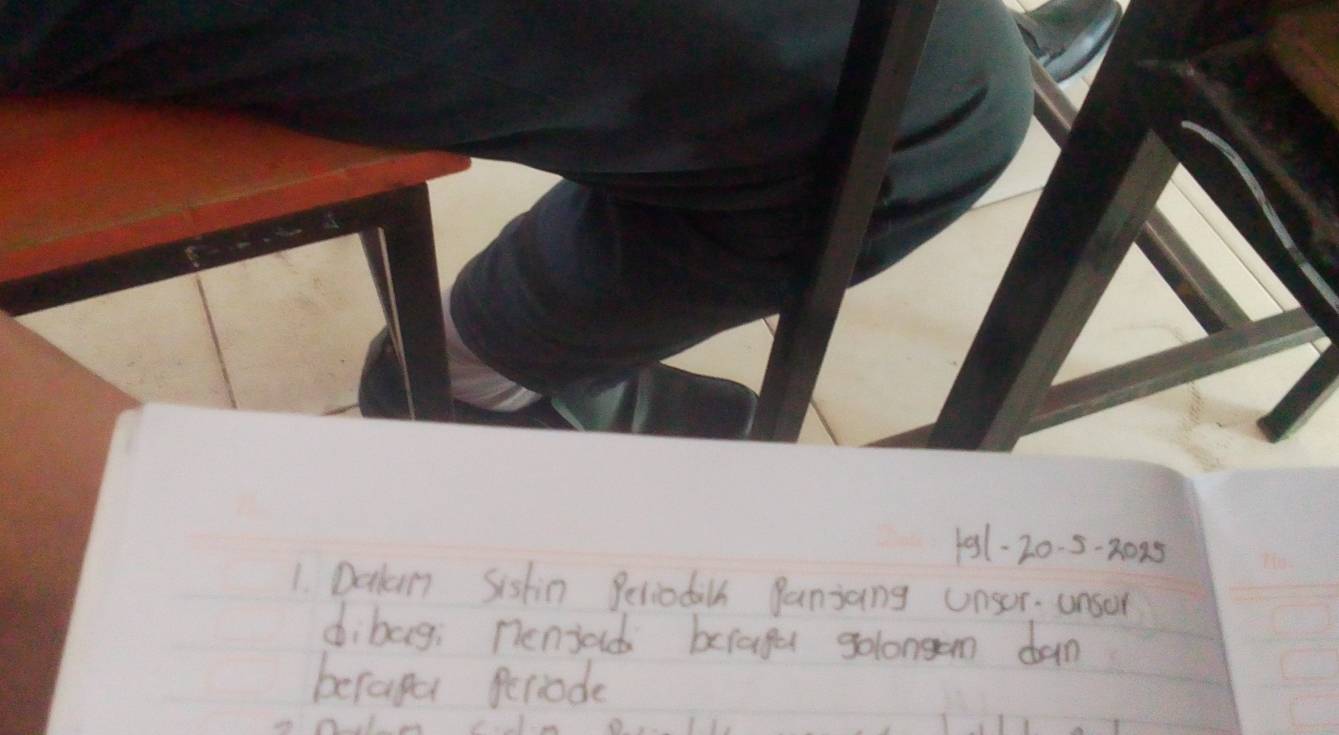 tgl-20-5-2025
1. Dalam Sistin Periodik Panjang unsur-unsur
dibagi Menjadi berapa golongan dan
berapa Periode
2 Dalam